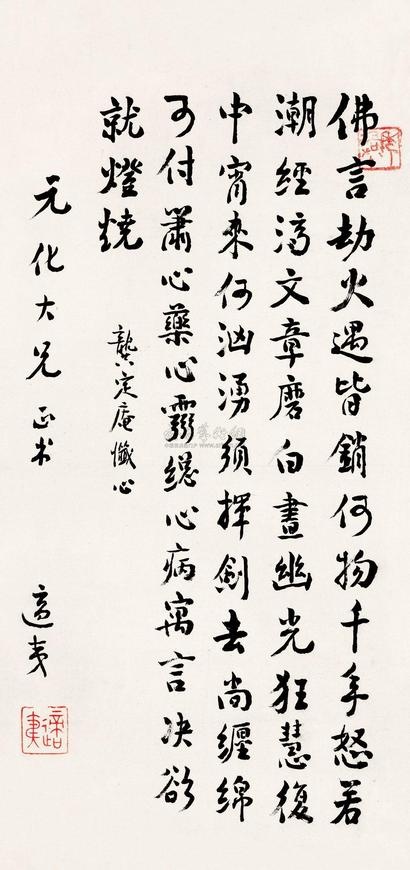 佛言劫火遇皆銷何物千年怒若
潮經濟文章磨白晝幽光狂慧復
中宵來何汹湧須揮劍去尚纏綿
可付簫心藥心靈總心病寓言决欲
就燈燒
龔定庵懺心
元化大兄正
適夷
適夷